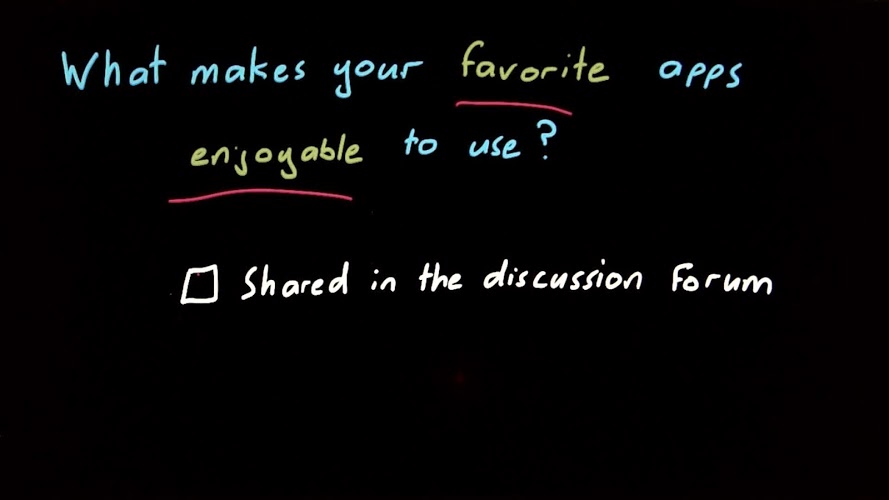 What makes your favorite apps
enjoyable to use?
Shared in the discussion Forum